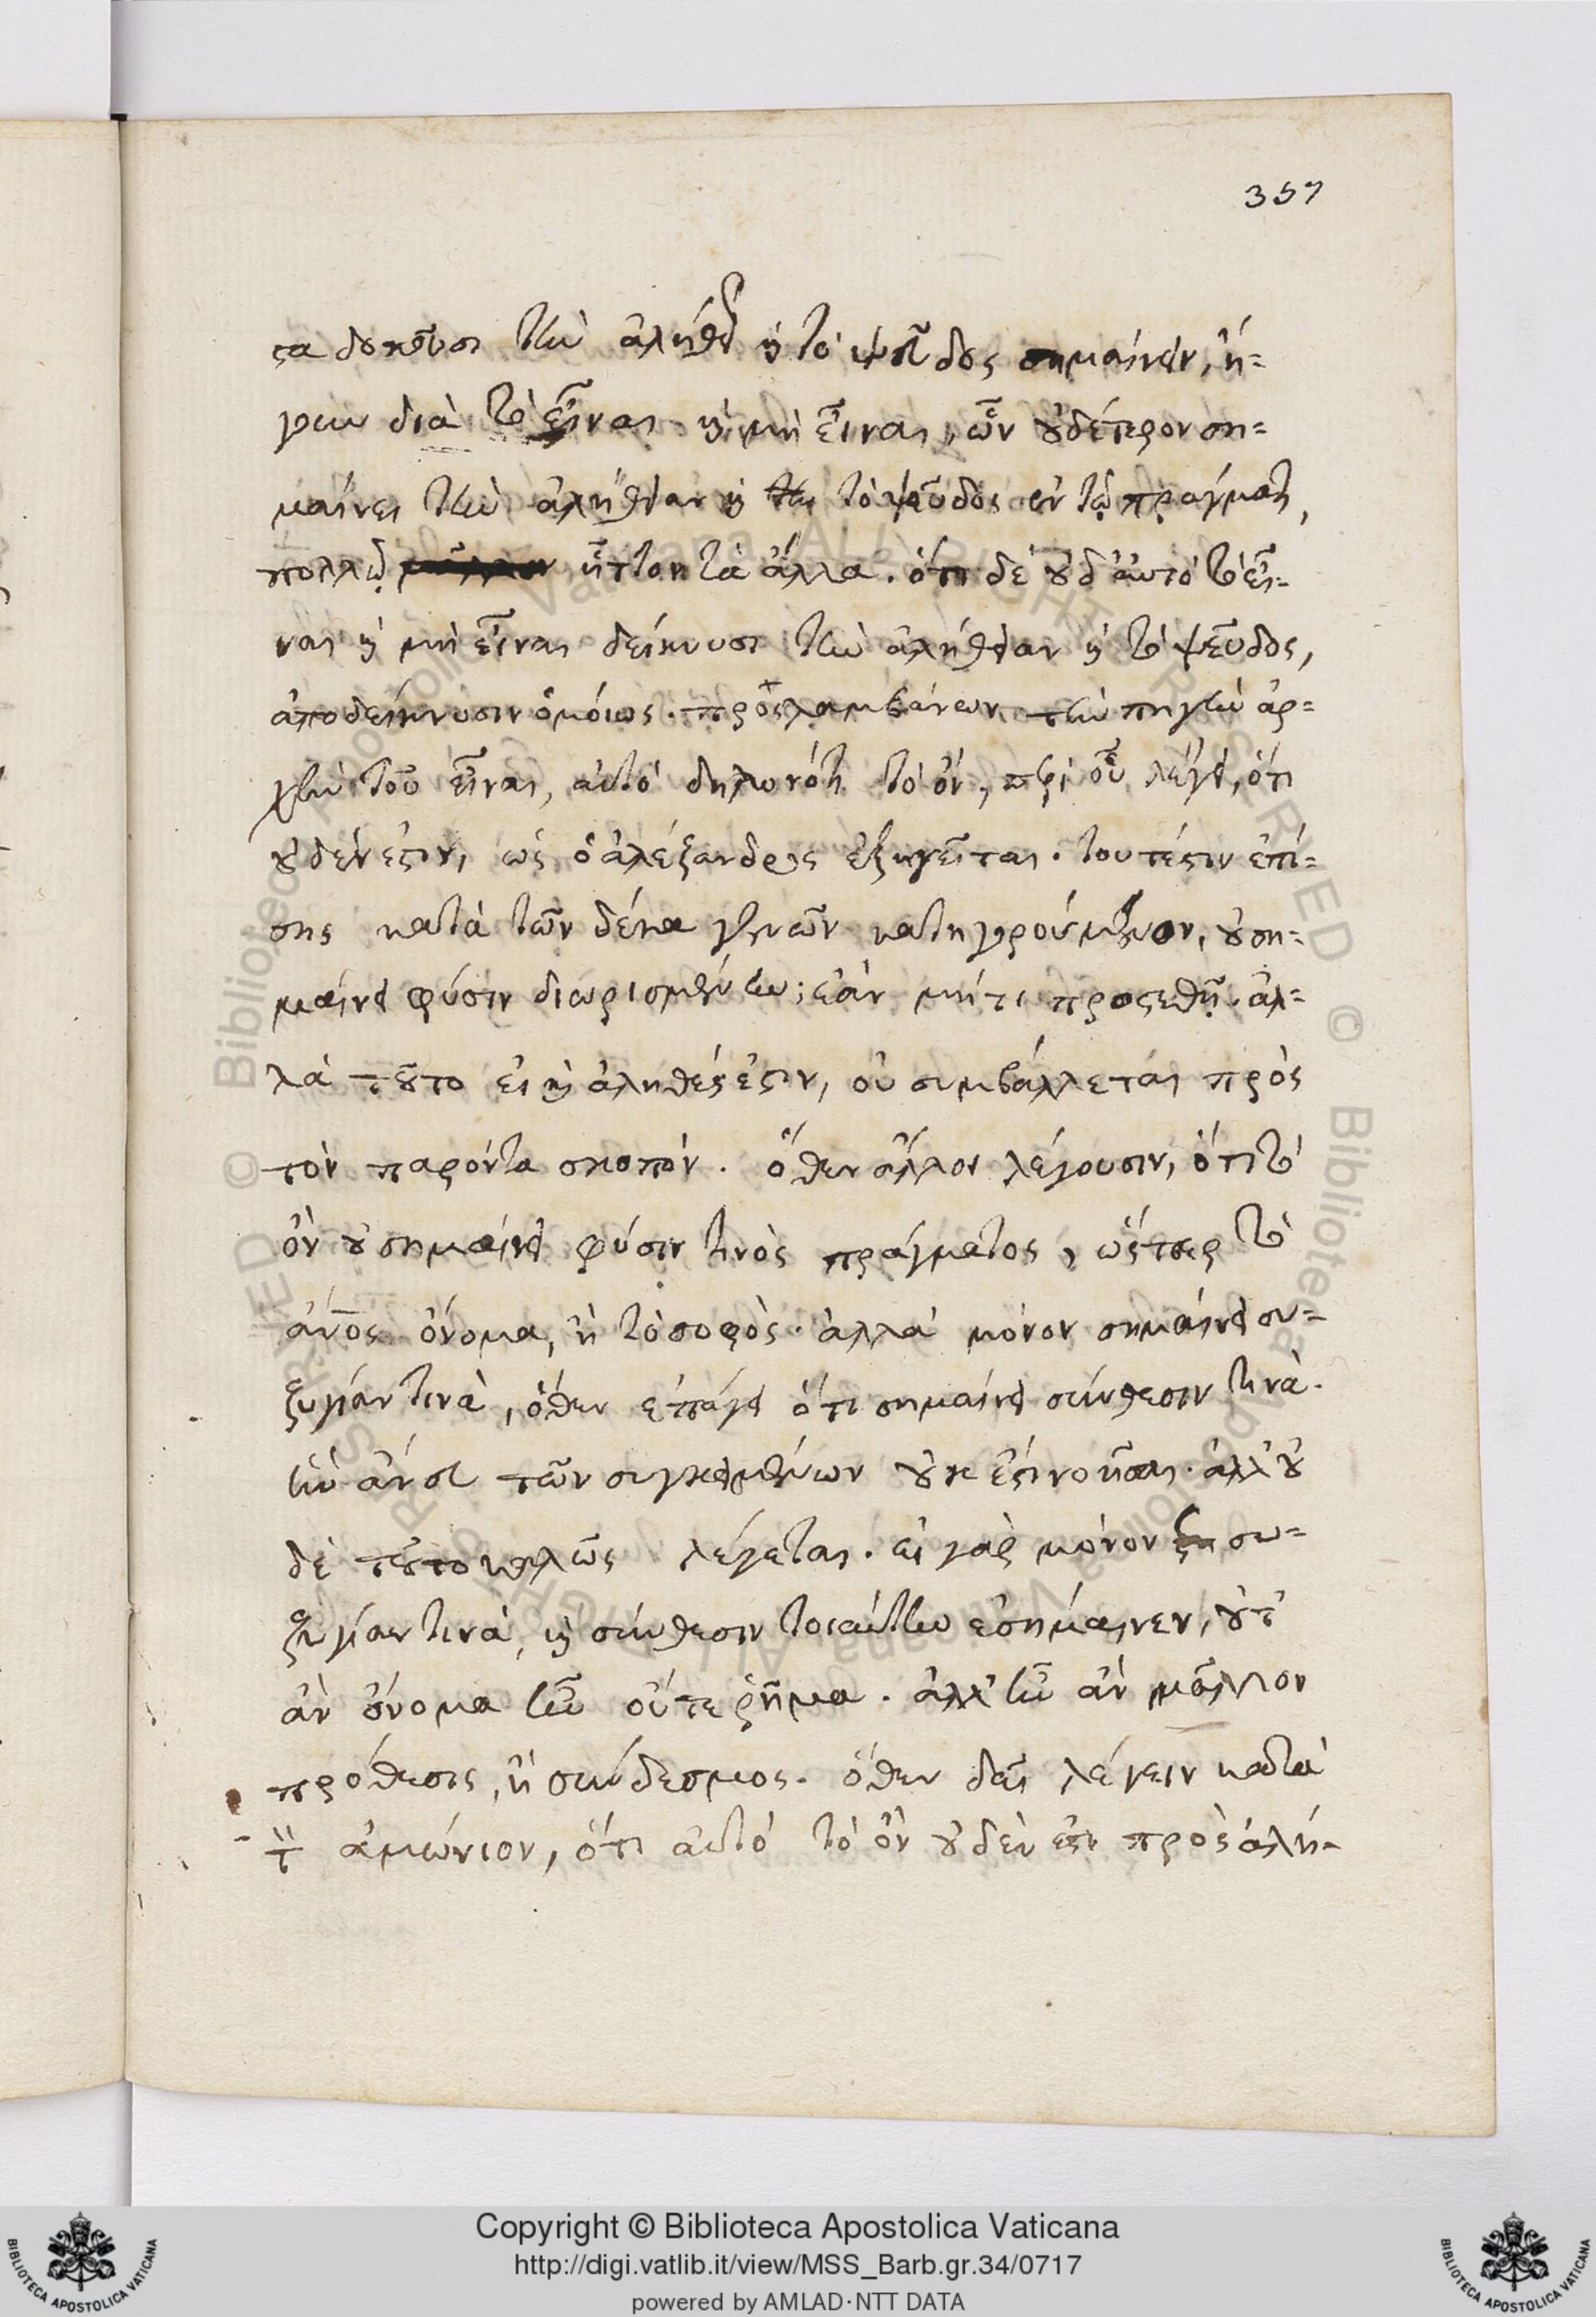 357
ςα δοκοῦσι τὴν ἀλήθει καὶ τὸ ψεῦδος σημαίνειν, ἤ-
γουν διὰ τὸ εἶναι καὶ μὴ εἶναι, ὧν οὐδέτερον ση-
μαίνει τὴν ἀλήθειαν καὶ τὸ ψεῦδος ἐν τῷ πράγματι,
πολλῷ ἧττον τὰ ἄλλα. ὅτι δὲ οὐδ' αὐτὸ τὸ εἶ-
ναι καὶ μὴ εἶναι δείκνυσι τὴν ἀλήθειαν καὶ τὸ ψεῦδος,
ἀποδείκνυσιν ὁμοίως. προσλαμβάνων τὴν πηγὴν ἀρ-
χὴν τοῦ εἶναι, αὐτὸ δηλονότι τὸ ὄν, περὶ οὗ λέγει, ὅτι
οὐδέν ἐςιν, ὡς ὁ ἀλέξανδρος ἐξηγεῖται. τουτέςιν ἐπί-
σης κατὰ τῶν δέκα γενῶν κατηγορούμενον, οὐ ση-
μαίνει φύσιν διωρισμένην· ἐὰν μή τι προςεθῇ. ἀλ-
λὰ τοῦτο εἰ καὶ ἀληθές ἐςιν, οὐ συμβάλλεται πρὸς
τὸν παρόντα σκοπόν. ὅθεν ἄλλοι λέγουσιν, ὅτι τὸ
ὂν οὐ σημαίνει φύσιν τινὸς πράγματος, ὥςπερ τὸ
ἄνος ὄνομα, ἢ τὸ σοφὸς. ἀλλὰ μόνον σημαίνει συ-
ζυγίαν τινὰ, ὅθεν ἐπάγει ὅτι σημαίνει σύνθεσιν τινὰ.
ἣν ἄνευ τῶν συγκειμένων οὐκ ἔςι νοῆσαι. ἀλλ' οὐ
δὲ τοῦτο καλῶς λέγεται. εἰ γὰρ μόνον συ-
ζυγίαν τινὰ, καὶ σύνθεσιν τοιαύτην ἐσήμαινεν, οὔτ'
ἂν ὄνομα ἦν οὔτε ῥῆμα. ἀλλ' ἦν ἂν μᾶλλον
πρόθεσις, ἢ σύνδεσμος. ὅθεν δεῖ λέγειν κατὰ
τ ἀμώνιον, ὅτι αὐτὸ τὸ ὂν οὐδέν ἐςι πρὸς ἀλή-
Copyright © Biblioteca Apostolica Vaticana
http://digi.vatlib.it/view/MSS_Barb.gr.34/0717
powered by AMLAD·NTT DATA